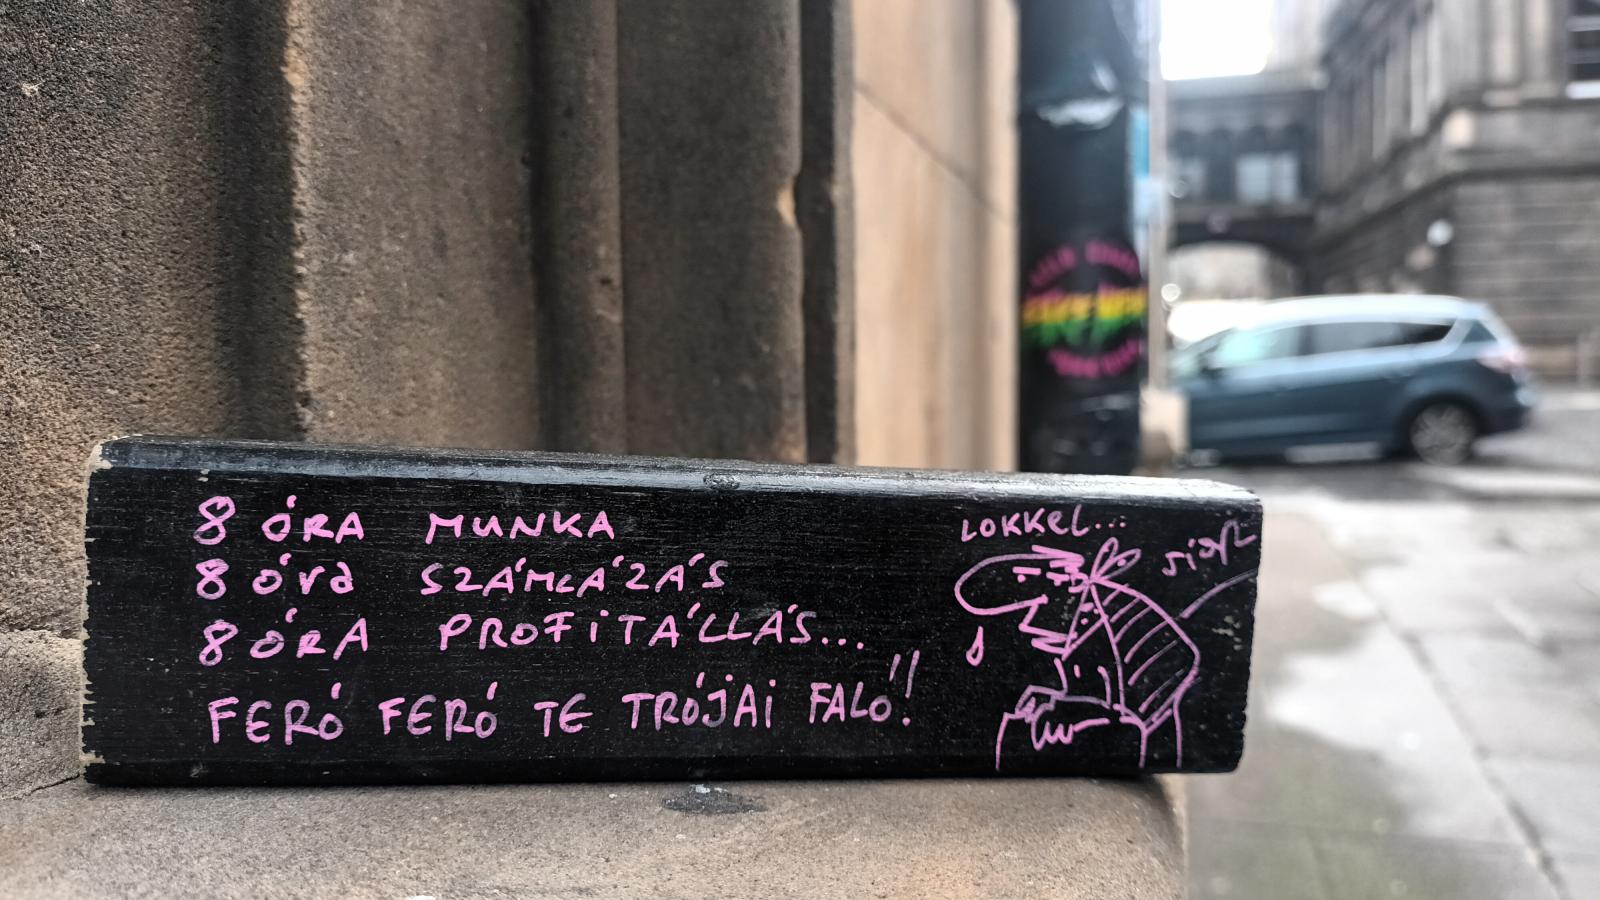 8 ÓRA MUNKA
8 óra SZÁMLÁZÁS
8 ÓRA PROFITÁLLÁS...
FERÓ FERÓ TE TRÓJAI FALÓ!!
LOKKEL...